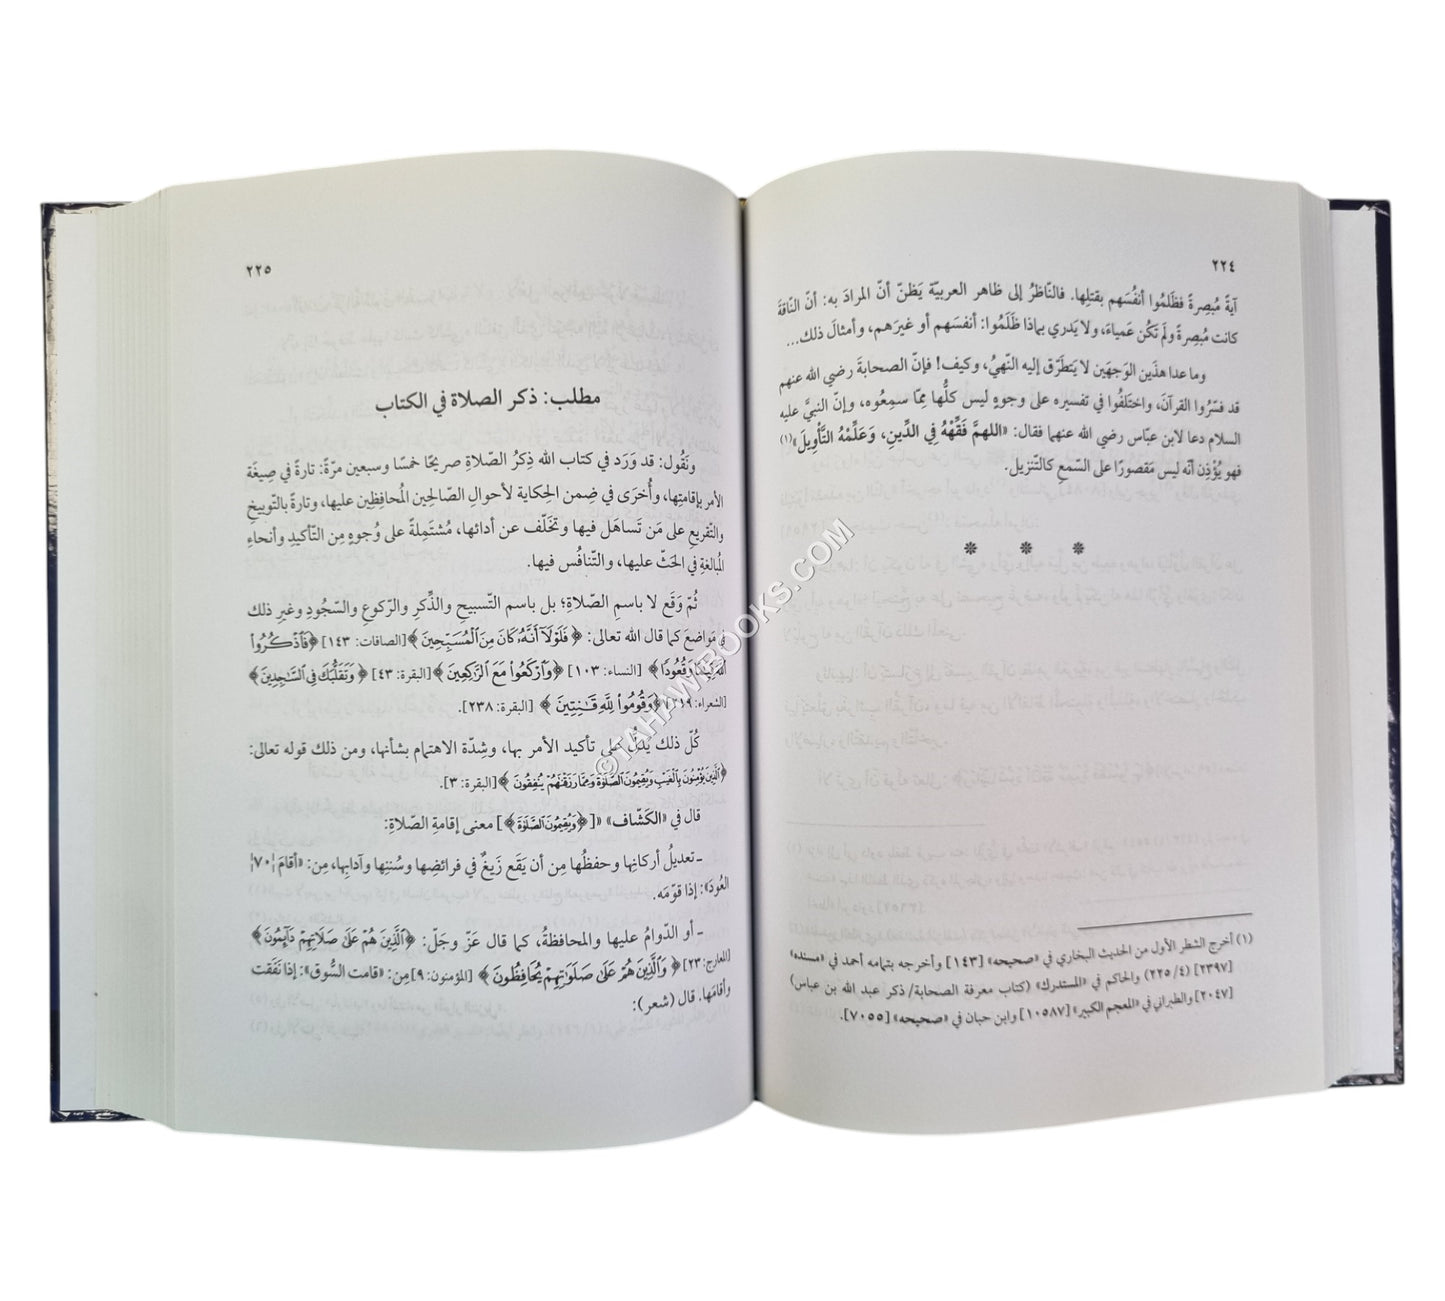 ٢٢٤
آيةً مُبصِرةً فظَلمُوا أنفُسَهم بقتلِها. فالنّاظرُ إلى ظاهر العربيّة يَظنّ أنّ المرادَ به: أنّ النّاقةَ
كانت مُبصِرةً ولم تَكُن عَمياءَ، ولا يَدري بماذا ظَلَمُوا: أنفسَهم أو غيرَهم، وأمثالَ ذلك...
وما عدا هذَين الوَجهَين لا يَتطَرّق إليه النّهيُ، وكيف! فإنّ الصحابةَ رضي الله عنهم
قد فسّرُوا القرآنَ، واختَلفُوا في تفسيره على وجوهٍ ليس كلُّها ممّا سمِعُوه، وإنّ النبيَّ عليه
السلام دعا لابن عبّاس رضي الله عنهما فقال: «اللهمَّ فَقِّهْهُ فِي الدِّينِ، وَعَلِّمْهُ التَّأْوِيلَ»(١)
فهو يُؤْذِن أنّه ليس مَقصورًا على السّمع كالتّنزيل.
* * *
(١) أخرج الشطر الأول من الحديث البخاري في «صحيحه» [١٤٣] وأخرجه بتمامه أحمد في «مسنده»
[٢٣٩٧] (٤/ ٢٢٥) والحاكم في «المستدرك» (كتاب معرفة الصحابة/ ذكر عبد الله بن عباس)
[٢٠٤٧] والطبراني في «المعجم الكبير» [١٠٥٨٧] وابن حبان في «صحيحه» [٧٠٥٥].
٢٢٥
مطلب: ذكر الصلاة في الكتاب
ونَقُول: قد وَرَد في كتاب الله ذِكرُ الصّلاةِ صريحًا خمسًا وسبعين مرّةً: تارةً في صِيغَة
الأمر بإقامتِها، وأُخرَى في ضِمن الحِكاية لأحوالِ الصّالحِين المُحافِظِين عليها، وتارةً بالتّوبيخِ
والتّقريعِ على مَن تَساهَل فيها وتخَلّف عن أدائها، مُشتَمِلةً على وُجوهٍ مِن التّأكيدِ وأنحاءِ
المُبالغةِ في الحَثّ عليها، والتّنافُس فيها.
ثُمّ وَقَع لا باسمِ الصّلاةِ؛ بل باسم التّسبيح والذِّكر والرّكوعِ والسّجُودِ وغيرِ ذلك
في مَواضعَ كما قال الله تعالى: ﴿فَلَوْلَآ أَنَّهُۥ كَانَ مِنَ ٱلْمُسَبِّحِينَ﴾ [الصافات: ١٤٣] ﴿فَٱذْكُرُوا۟
ٱللَّهَ قِيَٰمًا وَقُعُودًا﴾ [النساء: ١٠٣] ﴿وَٱرْكَعُوا۟ مَعَ ٱلرَّٰكِعِينَ﴾ [البقرة: ٤٣] ﴿وَتَقَلُّبَكَ فِى ٱلسَّٰجِدِينَ﴾
[الشعراء: ٢١٩] ﴿وَقُومُوا۟ لِلَّهِ قَٰنِتِينَ﴾ [البقرة: ٢٣٨].
كُلّ ذلك يَدُلّ على تأكيد الأمر بها، وشِدّة الاهتمام بشأنها، ومن ذلك قوله تعالى:
﴿ٱلَّذِينَ يُؤْمِنُونَ بِٱلْغَيْبِ وَيُقِيمُونَ ٱلصَّلَوٰةَ وَمِمَّا رَزَقْنَٰهُمْ يُنفِقُونَ﴾ [البقرة: ٣].
قال في «الكَشّاف» «[﴿وَيُقِيمُونَ ٱلصَّلَوٰةَ﴾] معنى إقامةِ الصّلاةِ:
ـ تعديلُ أركانِها وحفظُها مِن أن يَقَع زَيغٌ في فرائضِها وسُننِها وآدابِها، مِن: «أقامَ |٧٠|
العُودَ»: إذا قوّمَه.
ـ أو الدّوامُ عليها والمحافظةُ، كما قال عَزّ وجَلّ: ﴿ٱلَّذِينَ هُمْ عَلَىٰ صَلَاتِهِمْ دَآئِمُونَ﴾
[المعارج: ٢٣] ﴿وَٱلَّذِينَ هُمْ عَلَىٰ صَلَوَٰتِهِمْ يُحَافِظُونَ﴾ [المؤمنون: ٩] مِن: «قامت السُّوق»: إذا نَفَقت
وأقامَها. قال (شعر):
©TAHAWIBOOKS.COM